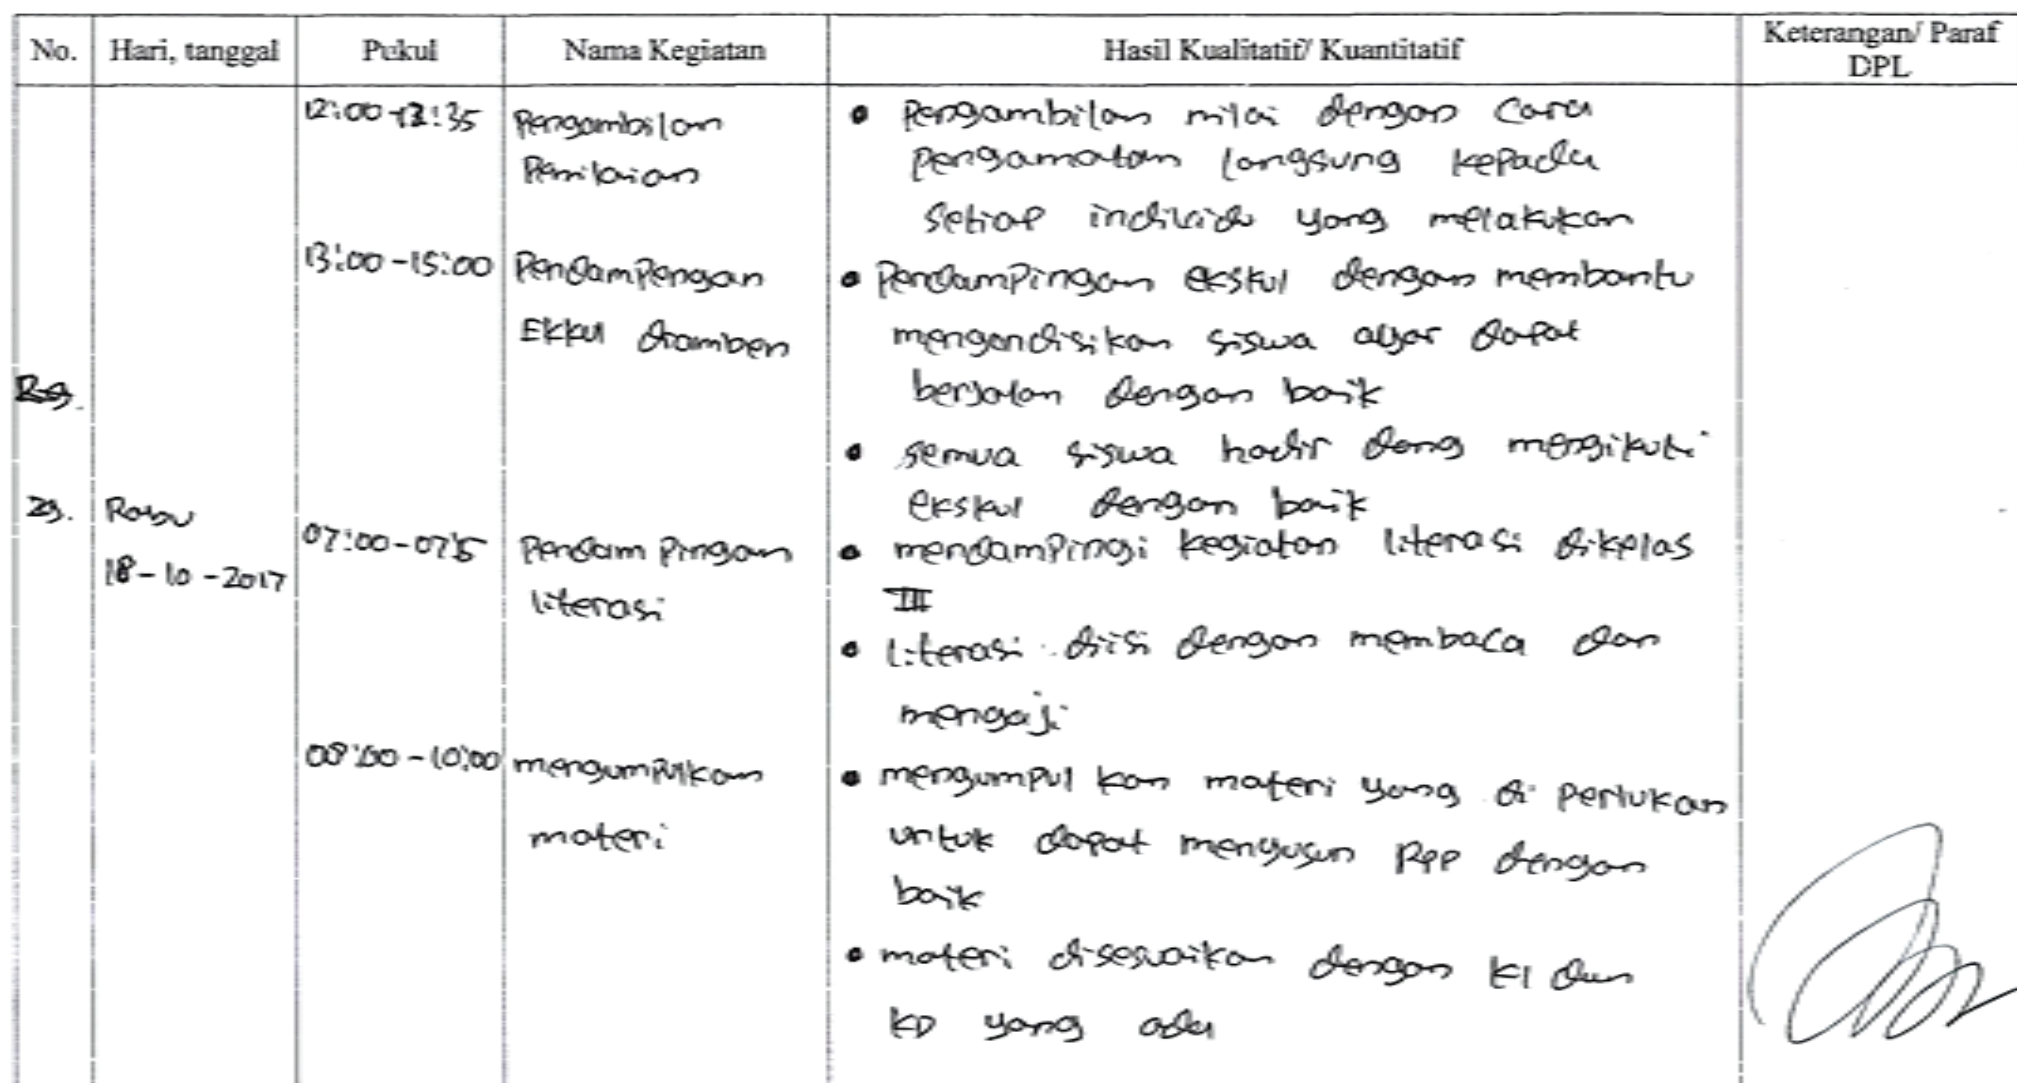 No. Hari, tanggal Pukul Nama Kegiatan Hasil Kualitatif/ Kuantitatif Keterangan/ Paraf DPL
12:00-12:35 Pengambilan Penilaian
• Pengambilan nilai dengan cara
pengamatan langsung kepada
setiap individu yang melakukan
13:00-15:00 Pendampengan
Ekkul dramben
• Pendampingan ekskul dengan membantu
mengondisikan siswa agar dapat
berjalan dengan baik
• semua siswa hadir dang mengikuti
ekskul dengan baik
29. Rabu
18-10-2017
07:00-07:15 Pendampingan
literasi
• mendampingi kegiatan literasi dikelas
III
• Literasi diisi dengan membaca dan
mengaji
08:00-10:00 mengumpulkan
materi
• mengumpul kan materi yang di perlukan
untuk dapat menyusun RPP dengan
baik
• materi disesuaikan dengan KI dan
KD yang ada